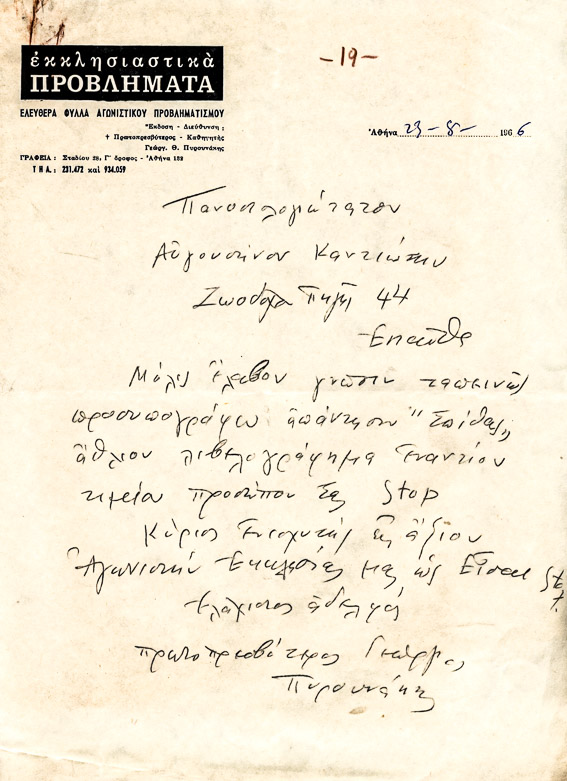 ἐκκλησιαστικὰ
ΠΡΟΒΛΗΜΑΤΑ
ΕΛΕΥΘΕΡΑ ΦΥΛΛΑ ΑΓΩΝΙΣΤΙΚΟΥ ΠΡΟΒΛΗΜΑΤΙΣΜΟΥ
Ἔκδοση - Διεύθυνση :
† Πρωτοπρεσβύτερος - Καθηγητὴς
Γεώργ. Θ. Πυρουνάκης
ΓΡΑΦΕΙΑ : Σταδίου 28, Γ΄ ὄροφος - Ἀθήνα 132
ΤΗΛ.: 231.472 καὶ 934.059
-19-
Ἀθήνα 23-8- 1966
Πανοσιολογιώτατον
Αὐγουστῖνον Καντιώτην
Ζωοδόχου Πηγῆς 44
Ἐνταῦθα
Μόλις ἔλαβον γνῶσιν ταπεινῶς
προσυπογράφω ἀπάντησιν "Σπίθας"
ἄθλιον λιβελογράφημα ἐναντίον
τιμίου προσώπου σας Stop
Κύριος ἐνισχυτής εἰς ἄξιον
Ἀγωνιστὴν Ἐκκλησίας μας ὡς Εἶσθε Stop
ἐλάχιστος ἀδελφός
πρωτοπρεσβύτερος Γεώργιος
Πυρουνάκης